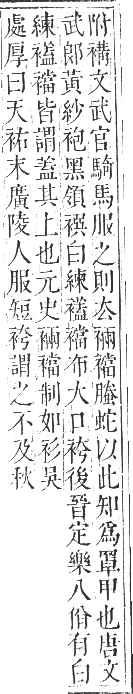 附褠文武官騎馬服之則去裲襠螣蛇以此知爲罩甲也唐文
武郎黃紗袍黑領褾白練䙡襠布大口袴後晉定樂八佾有白
練䙡襠皆謂蓋其上也元史裲襠制如衫吳
處厚曰天祐末廣陵人服短袴謂之不及秋